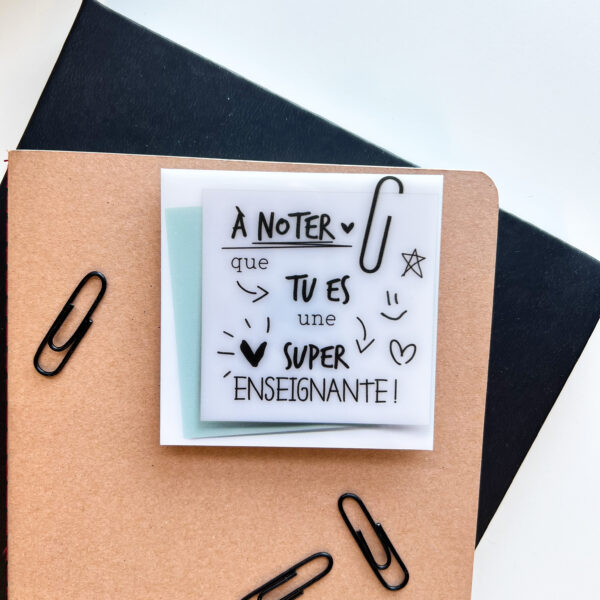 À NOTER
que
TU ES
une
SUPER
ENSEIGNANTE !